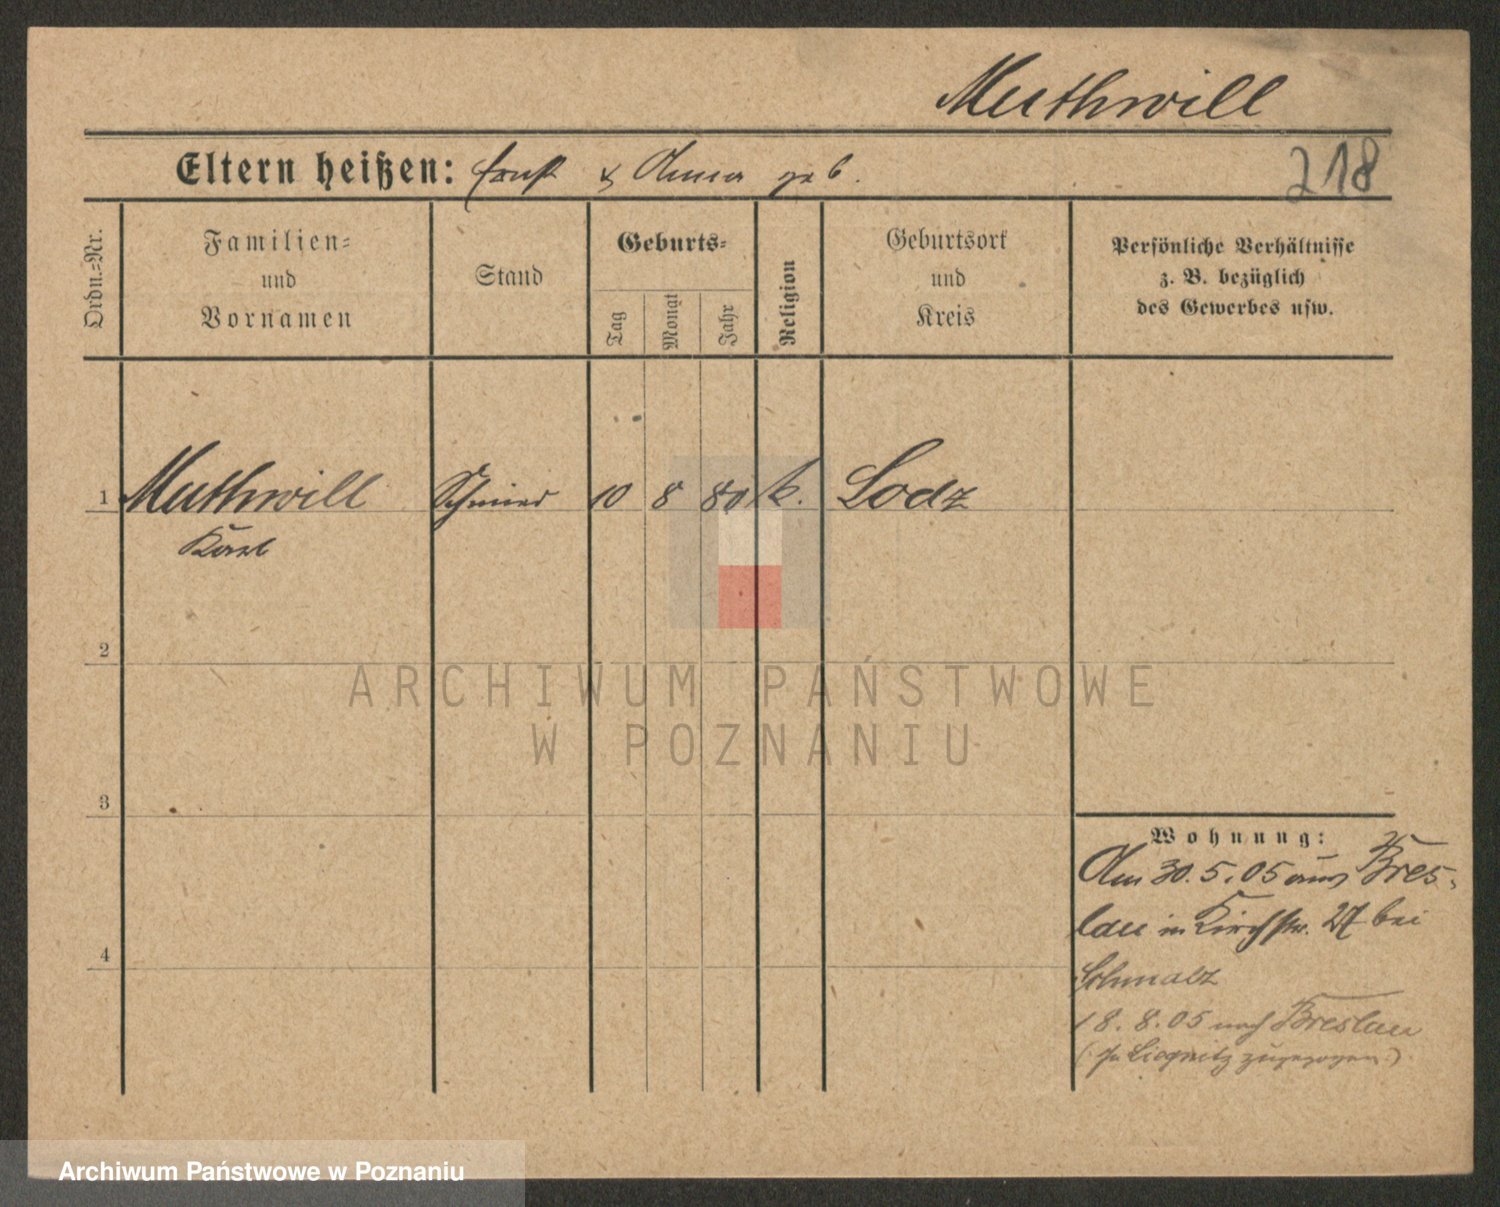 Muthwill
Eltern heißen: Ernst & Anna geb.
218
Ordn.=Nr.
Familien=
und
Vornamen
Stand
Geburts=
Tag
Monat
Jahr
Religion
Geburtsort
und
Kreis
Persönliche Verhältnisse
z. B. bezüglich
des Gewerbes usw.
1 Muthwill 10 8 80 k. Lodz
Karl
2
3
4
Wohnung:
Am 30.5.05 aus Bres-
lau in Kirchstr. 27 bei
Schmalz
18.8.05 nach Breslau
(In Liegnitz zugezogen)
ARCHIWUM PAŃSTWOWE
W POZNANIU
Archiwum Państwowe w Poznaniu